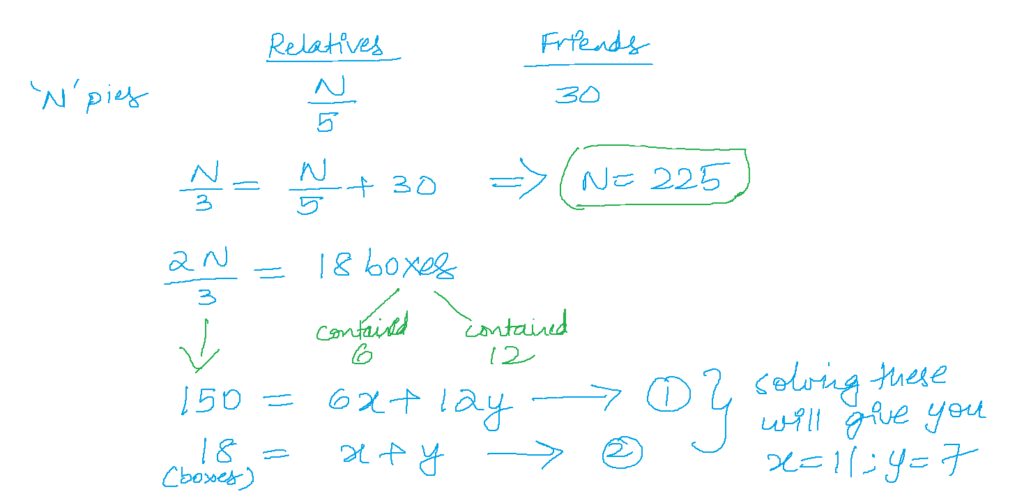 Relatives Friends
'N' pies N/5 30
N/3 = N/5 + 30 => N = 225
2N/3 = 18 boxes
contained 6 contained 12
150 = 6x + 12y → ① } solving these
18 = x + y → ② will give you
(boxes) x = 11 ; y = 7